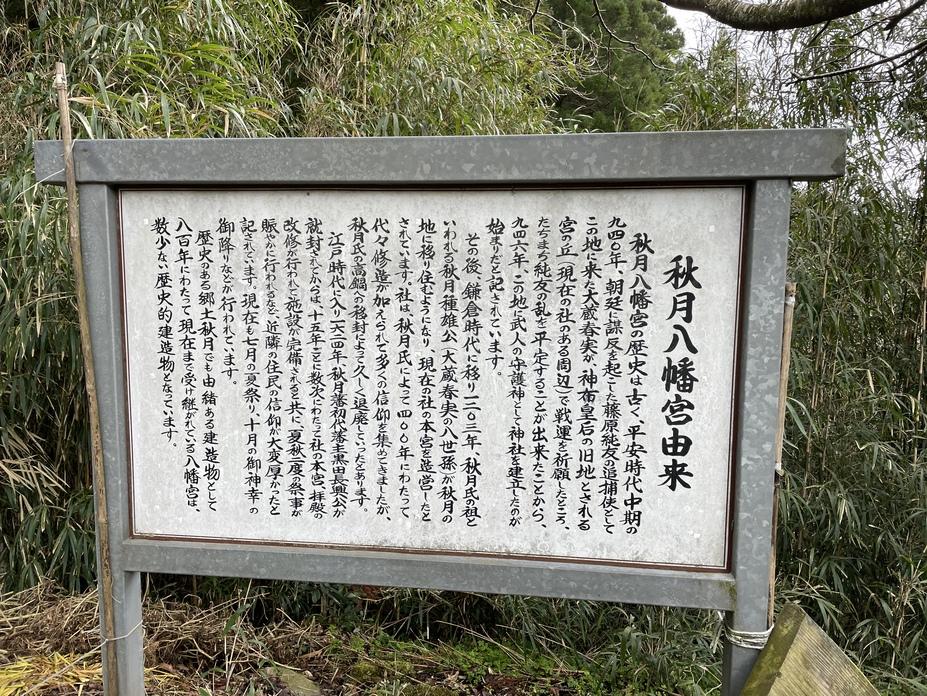 秋月八幡宮由来
秋月八幡宮の歴史は古く、平安時代中期の
九四〇年、朝廷に謀反を起こした藤原純友の追捕使として
この地に来た大蔵春実が、神功皇后の旧地とされる
宮の丘(現在の社のある周辺)で戦運を祈願したところ、
たちまち純友の乱を平定することが出来たことから、
九四六年、この地に武人の守護神として神社を建立したのが
始まりだと記されています。
その後、鎌倉時代に移り一二〇三年、秋月氏の祖と
いわれる秋月種雄公(大蔵春実の八世孫)が秋月の
地に移り住むようになり、現在の社の本宮を造営したと
されています。社は、秋月氏によって四〇〇年にわたって、
代々修造が加えられて多くの信仰を集めてきましたが、
秋月氏の高鍋への移封によって久しく退廃していったとあります。
江戸時代に入り一六二四年、秋月藩初代藩主黒田長興公が
就封されてからは、十五年ごとに数次にわたって社の本宮、拝殿の
改修が行われて施設が完備されると共に、夏秋二度の祭事が
賑やかに行われるなど、近隣の住民の信仰が大変厚かったと
記されています。現在も七月の夏祭り、十月の御神幸の
御降りなどが行われています。
歴史のある郷土秋月でも由緒ある建造物として
八百年にわたって現在まで受け継がれている八幡宮は、
数少ない歴史的建造物となっています。